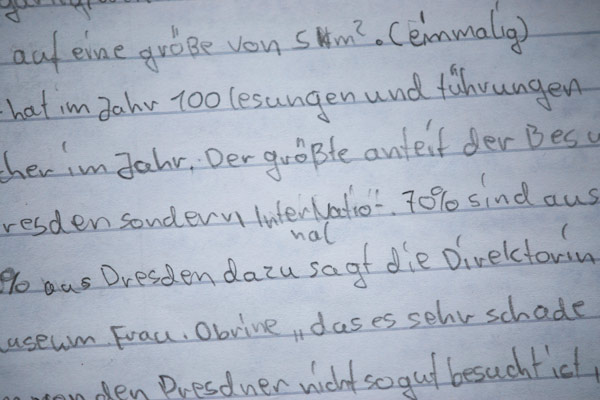 auf eine größe von 5 km². (einmalig)
hat im Jahr 100 lesungen und führungen
cher im Jahr. Der größte anteil der Besu
resden sondern InterNatio-. 70% sind aus
nal
% aus Dresden dazu sagt die Direktorin
useum Frau. Obrine „das es sehr schade
den Dresdner nicht so gut besucht ist,